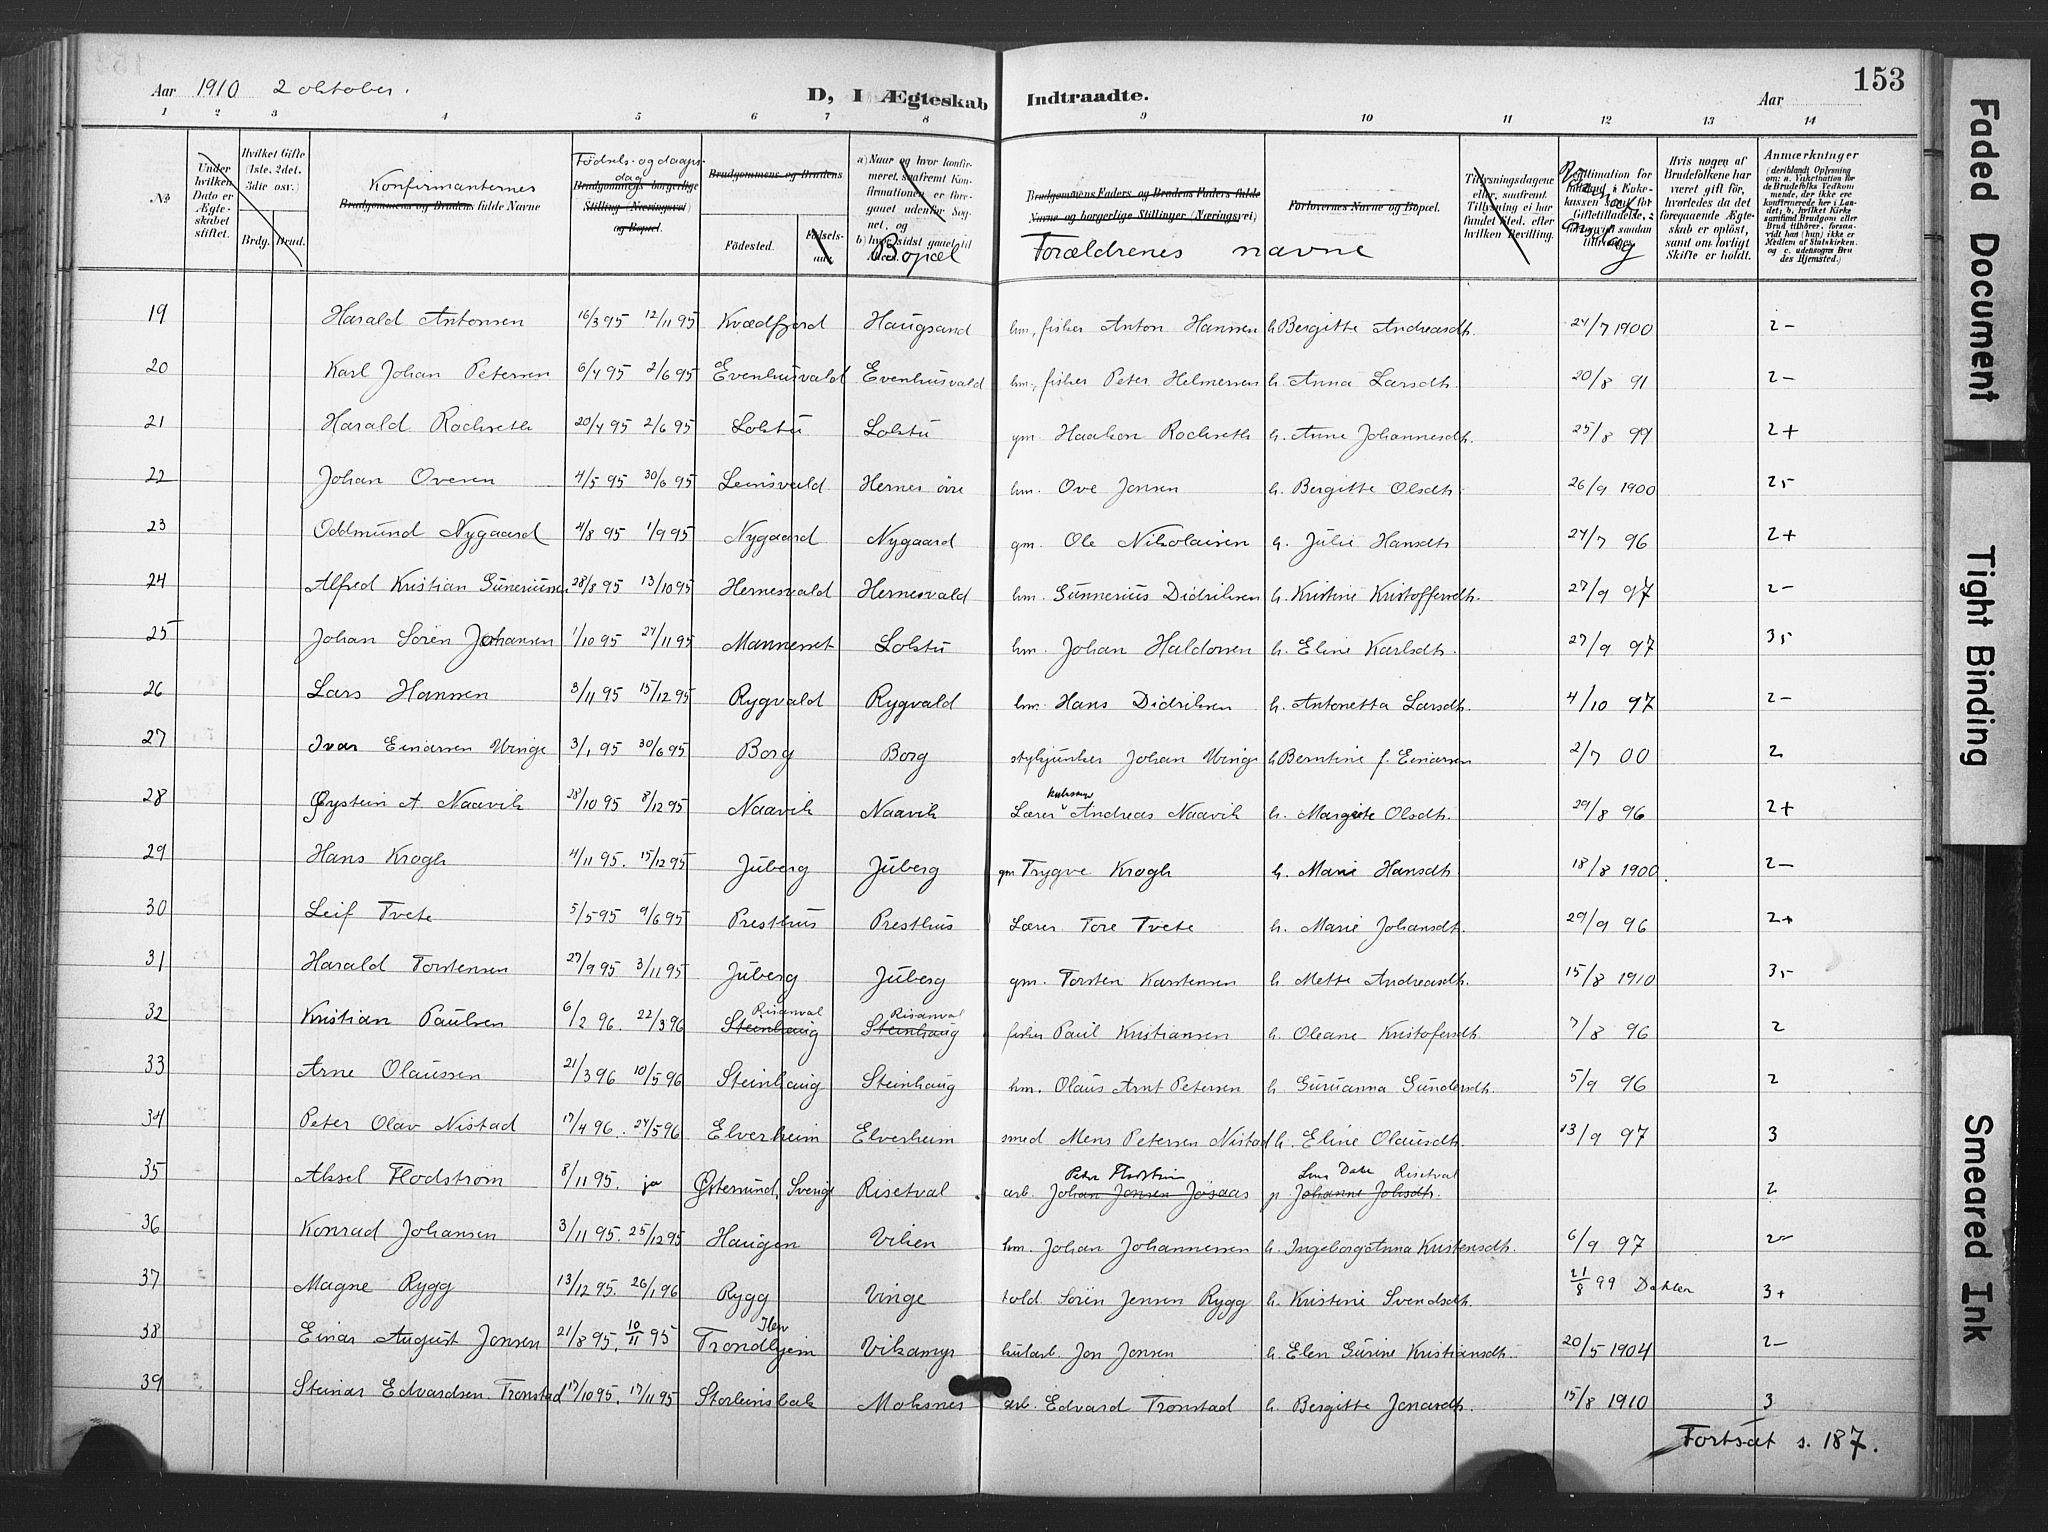 153
Aar 1910 2 oktober.
D, I Ægteskab Indtraadte.
Aar
1 2 3 4 5 6 7 8 9 10 11 12 13 14
№
Under hvilken Dato er Ægteskabet stiftet.
Hvilket Gifte (1ste, 2det, 3die osv.)
Brdg. Brud.
Konfirmanternes
Brudgommens og Brudens fulde Navne
Fødsels- og daapsdag
Brudgommens borgerlige Stilling (Næringsvei) og Bopæl.
Brudgommens og Brudens
Fødested.
Fødselsaar.
a) Naar og hvor konfirmeret, saafremt Konfirmationen er foregaaet udenfor Sognet, og
b) hvor sidst gaaet til Alters.
Bopæl
Brudgommens Faders og Brudens Faders fulde Navne og borgerlige Stillinger (Næringsvei)
Forældrenes navne
Forlovernes Navne og Bopæl.
Tillysningsdagene eller, saafremt Tillysning ei har fundet Sted, efter hvilken Bevilling.
Hvis nogen af Brudefolkene har været gift før, hvorledes da det foregaaende Ægteskab er opløst, samt om lovligt Skifte er holdt.
Anmærkninger
19 Harald Antonsen 16/3 95 12/11 95 Kvædfjord Haugsand hm, fisker Anton Hanssen h. Bergitte Andreasdt. 24/7 1900 2-
20 Karl Johan Petersen 6/4 95 2/6 95 Evenhusvald Evenhusvald hm, fisker Peter Helmersen h. Anna Larsdt. 20/8 91 2-
21 Harald Rochseth 20/4 95 2/6 95 Lokstu Lokstu gm. Haakon Rochseth h. Anne Johannesdt. 25/8 99 2+
22 Johan Ovesen 4/5 95 30/6 95 Leinsvald Hernes øvre hm. Ove Jensen h. Bergitte Olsdt. 26/9 1900 2-
23 Oddmund Nygaard 4/8 95 1/9 95 Nygaard Nygaard gm. Ole Nikolaisen h. Julie Hansdt. 24/7 96 2+
24 Alfred Kristian Guneriussen 28/8 95 13/10 95 Hernesvald Hernesvald hm. Gunnerius Didriksen h. Kristine Kristoffersdt. 27/9 97 2-
25 Johan Sören Johansen 1/10 95 24/11 95 Mannesset Lokstu hm. Johan Haldorsen h. Eline Karlsdt. 27/9 97 3-
26 Lars Hansen 3/11 95 15/12 95 Rygvald Rygvald hm. Hans Didriksen h. Antonetta Larsdt. 4/10 97 2-
27 Ivar Einarsen Winge 3/1 95 30/6 95 Borg Borg stykjunker Johan Winge h. Berntine f. Einarsen 2/7 00 2
28 Øystein A. Naavik 28/10 95 8/12 95 Naavik Naavik Lærer Andreas Naavik h. Margrete Olsdt. 29/8 96 2+
29 Hans Krogh 4/11 95. 15/12 95 Juberg Juberg gm Trygve Krogh h. Marie Hansdt. 18/8 1900. 2-
30 Leif Tvete 5/5 95 9/6 95 Presthus Presthus Lærer Tore Tvete h. Marie Johansdt. 29/9 96 2+
31 Harald Torstensen 27/9 95 3/11 95 Juberg Juberg gm. Torsten Karstensen h. Mette Andreasdt. 15/8 1910 3-
Risanval Risanval
32 Kristian Paulsen 6/2 96. 22/3 96 Steinhaug Steinhaug fisker Paul Kristiansen h. Oleane Kristofersdt. 7/8 96 2
33 Arne Olaussen 21/3 96 10/5 96 Steinhaug Steinhaug hm. Olaus Arnt Petersen h. Guruanna Gundersdt. 5/9 96 2
34 Peter Olav Nistad 17/4 96. 24/5 96 Elverheim Elverheim smed Mens Petersen Nistad h. Eline Olausdt. 13/9 97 3
Risetval
35 Aksel Flodström 8/11 95. ja Østersund, Sverige Risetval arb. Johan Jensen Jøsaas p. Johanne Johsdt. 2
36 Konrad Johansen 3/11 95. 25/12 95 Haugen Viken hm. Johan Johannessen h. Ingeborg Anna Kristensdt. 6/9 97 2-
37 Magne Rygg 13/12 95. 26/1 96 Rygg Vinge told. Sören Jensen Rygg h. Kristine Svendsdt. 21/8 99 Dahler 3+
38 Einar August Jensen 21/8 95. 10/11 95 Trondhjem Ilen Vikamyr kularb. Jon Jensen h. Elen Gurine Kristiansdt. 20/5 1904 2-
39 Steinar Edvardsen Tronstad 17/10 95. 17/11 95 Storleinsbak Moksnes arb. Edvard Tronstad h. Bergitte Jonasdt. 15/8 1910 3
Fortsat s. 187.
Faded Document
Tight Binding
Smeared Ink